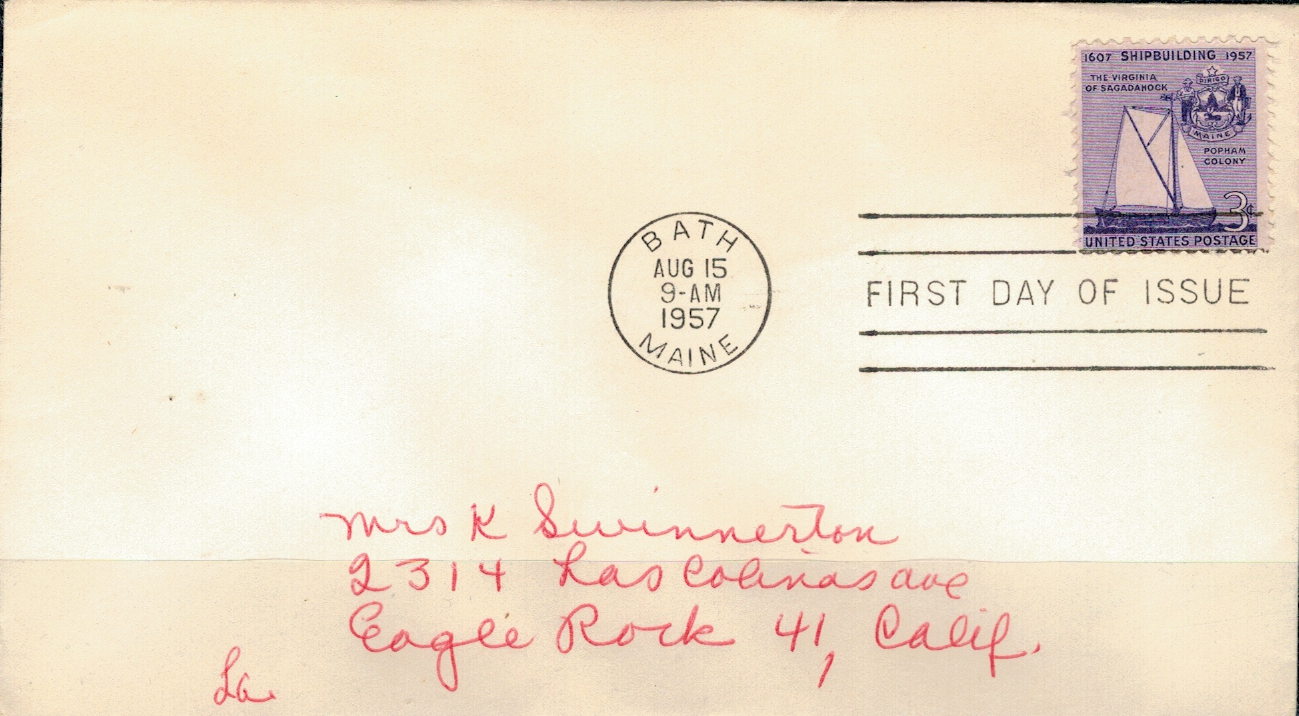 1607 SHIPBUILDING 1957
THE VIRGINIA
OF SAGADAHOCK
DIRIGO
MAINE
POPHAM
COLONY
3¢
UNITED STATES POSTAGE
BATH
AUG 15
9-AM
1957
MAINE
FIRST DAY OF ISSUE
Mrs K Swinnerton
2314 Las Colinas ave
Eagle Rock 41, Calif.
La.